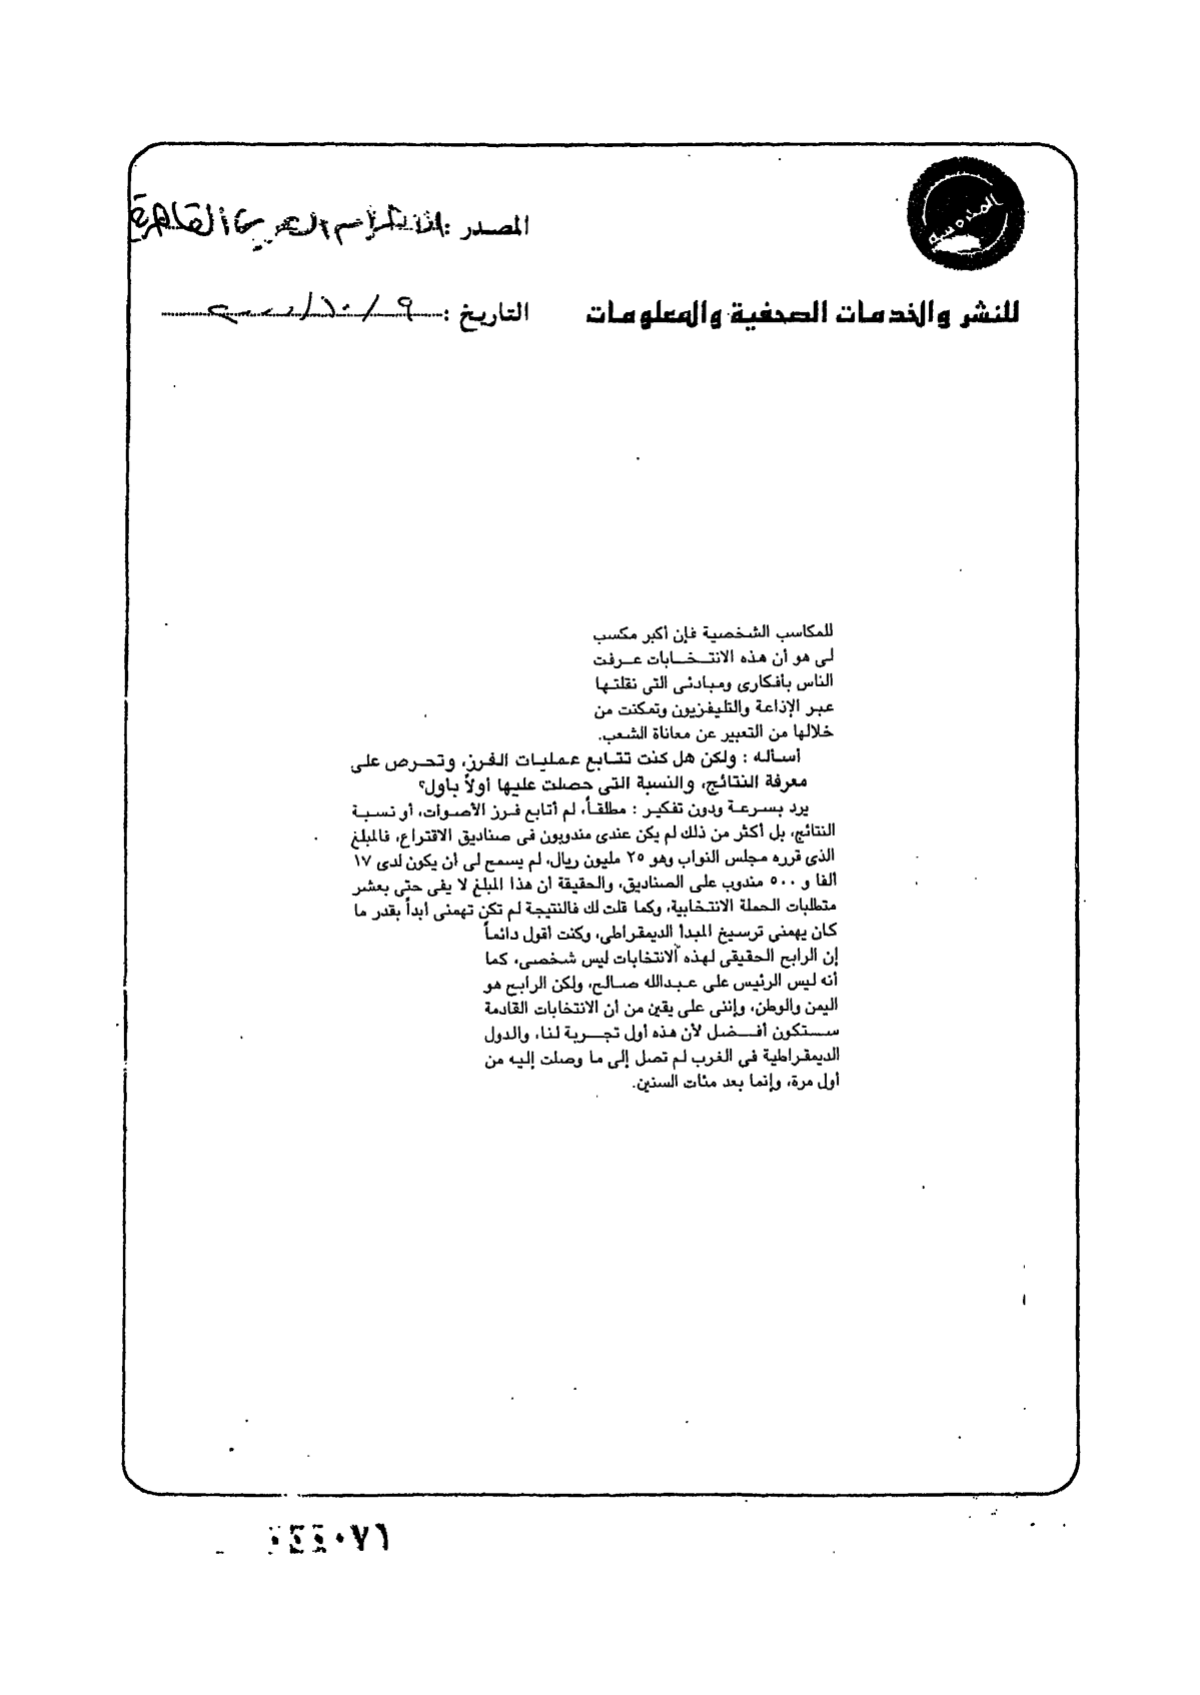 المصدر : الأهرام العربى القاهرة
للنشر والخدمات الصحفية والمعلومات
التاريخ : ٩ / ١٠ /
للمكاسب الشخصية فإن أكبر مكسب
لى هو أن هذه الانتـخـابات عـرفت
الناس بأفكارى ومبادئى التى نقلتـها
عبر الإذاعة والتليفزيون وتمكنت من
خلالها من التعبير عن معاناة الشعب.
أسـأله : ولكن هل كنت تتـابع عـمليـات الفـرز، وتحـرص على
معرفة النتائج، والنسبة التى حصلت عليها أولاً بأول؟
يرد بسـرعـة ودون تفكيـر : مطلقـاً، لم أتابع فـرز الأصـوات، أو نسـبـة
النتائج، بل أكثر من ذلك لم يكن عندى مندوبون فى صناديق الاقتراع، فالمبلغ
الذى قرره مجلس النواب وهو ٢٥ مليون ريال، لم يسمح لى أن يكون لدى ١٧
ألفا و ٥٠٠ مندوب على الصناديق، والحقيقة أن هذا المبلغ لا يفى حتى بعشر
متطلبات الحملة الانتخابية، وكما قلت لك فالنتيجة لم تكن تهمنى أبداً بقدر ما
كان يهمني ترسيخ المبدأ الديمقراطى، وكنت أقول دائماً
إن الرابح الحقيقى لهذه الانتخابات ليس شخصى، كما
أنه ليس الرئيس على عـبـدالله صـالح، ولكن الرابـح هو
اليمن والوطن، وإننى على يقين من أن الانتخابات القادمة
سـتكون أفـضل لأن هذه أول تجـربة لنا، والدول
الديمقـراطية فى الغرب لم تصل إلى ما وصلت إليه من
أول مرة، وإنما بعد مئات السنين.